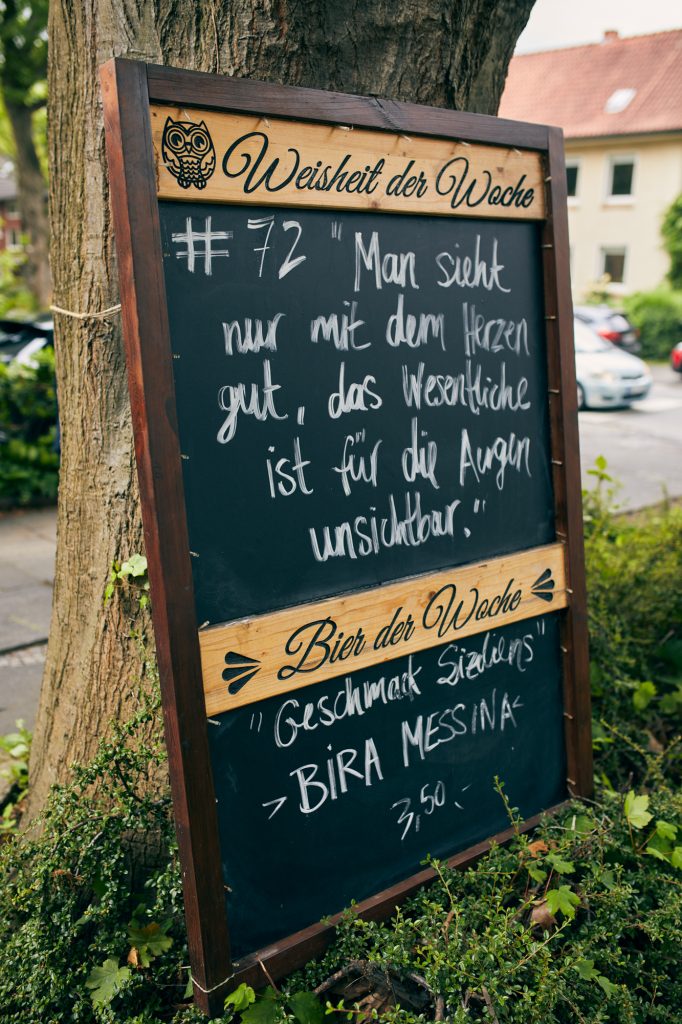 Weisheit der Woche
# 72 "Man sieht
nur mit dem Herzen
gut, das Wesentliche
ist für die Augen
unsichtbar."
Bier der Woche
"Geschmack Siziliens"
> BIRA MESSINA <
3,50.-